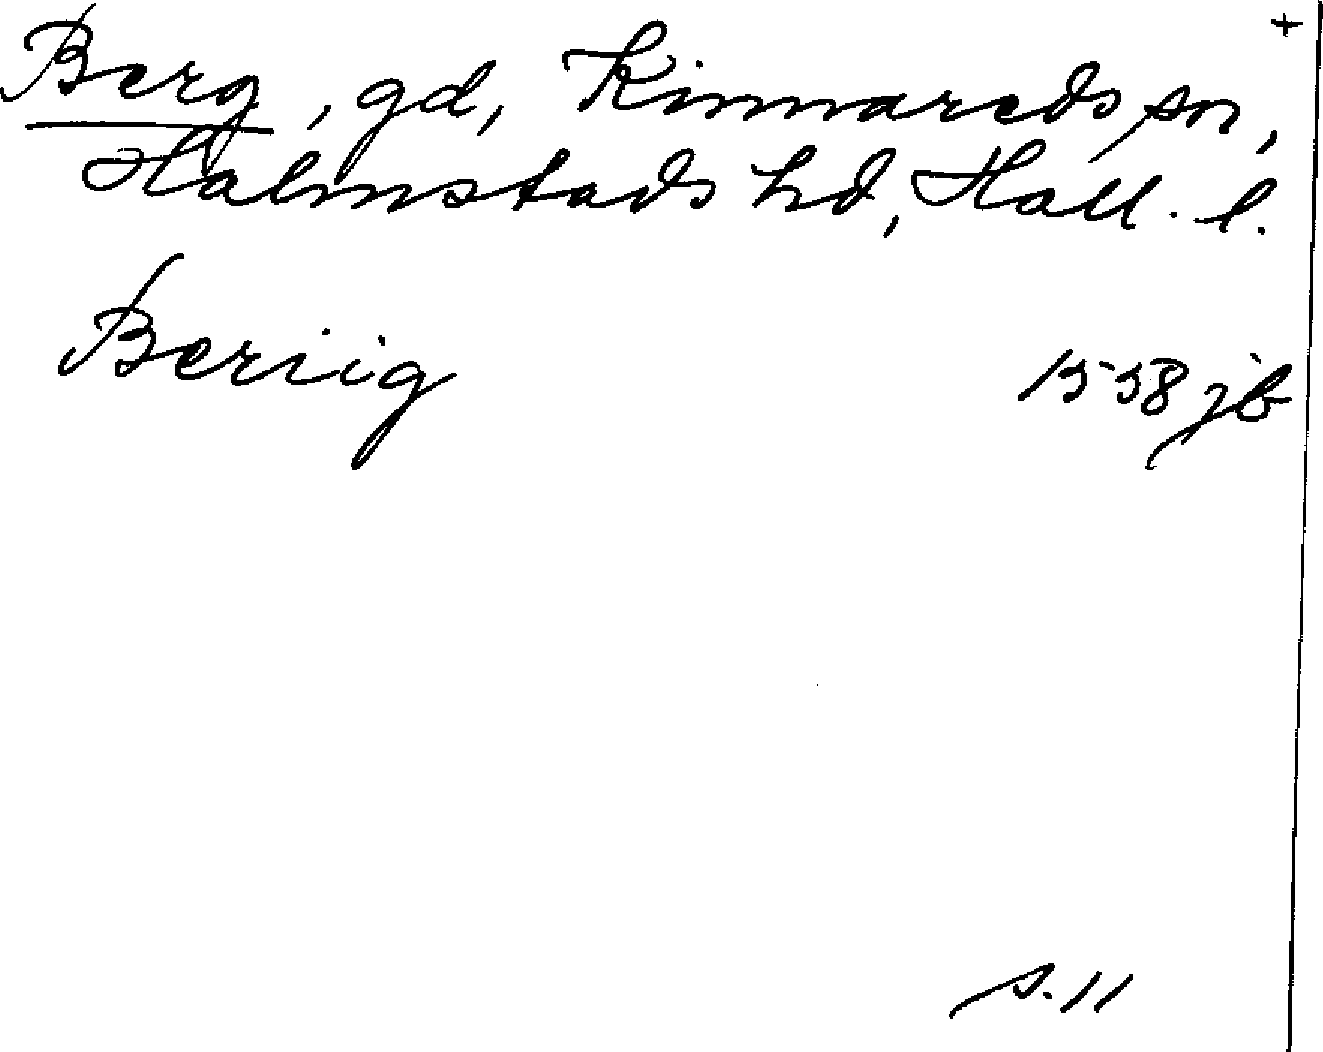 +
Berg, gd, Kinnareds sn,
Halmstads hd, Hall. l.
Beriig 1538 jb
s. 11